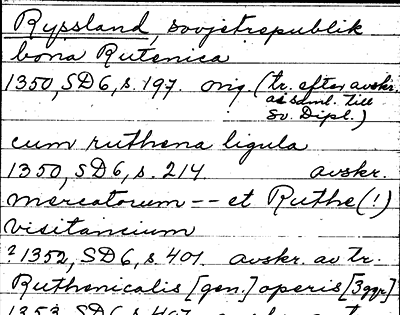 Ryssland, sovjetrepublik
bona Rutenica
1350, SD6, s. 197. orig (tr. efter avskr.
i saml. till
Sv. Dipl.)
cum ruthena ligula
1350, SD6, s. 214 avskr.
mercatorum -- et Ruthe(!)
visitancium
? 1352, SD6, s. 401. avskr. av tr.
Ruthenicalis [gen.] operis [3ggr]
1353, SD6, s. 407.